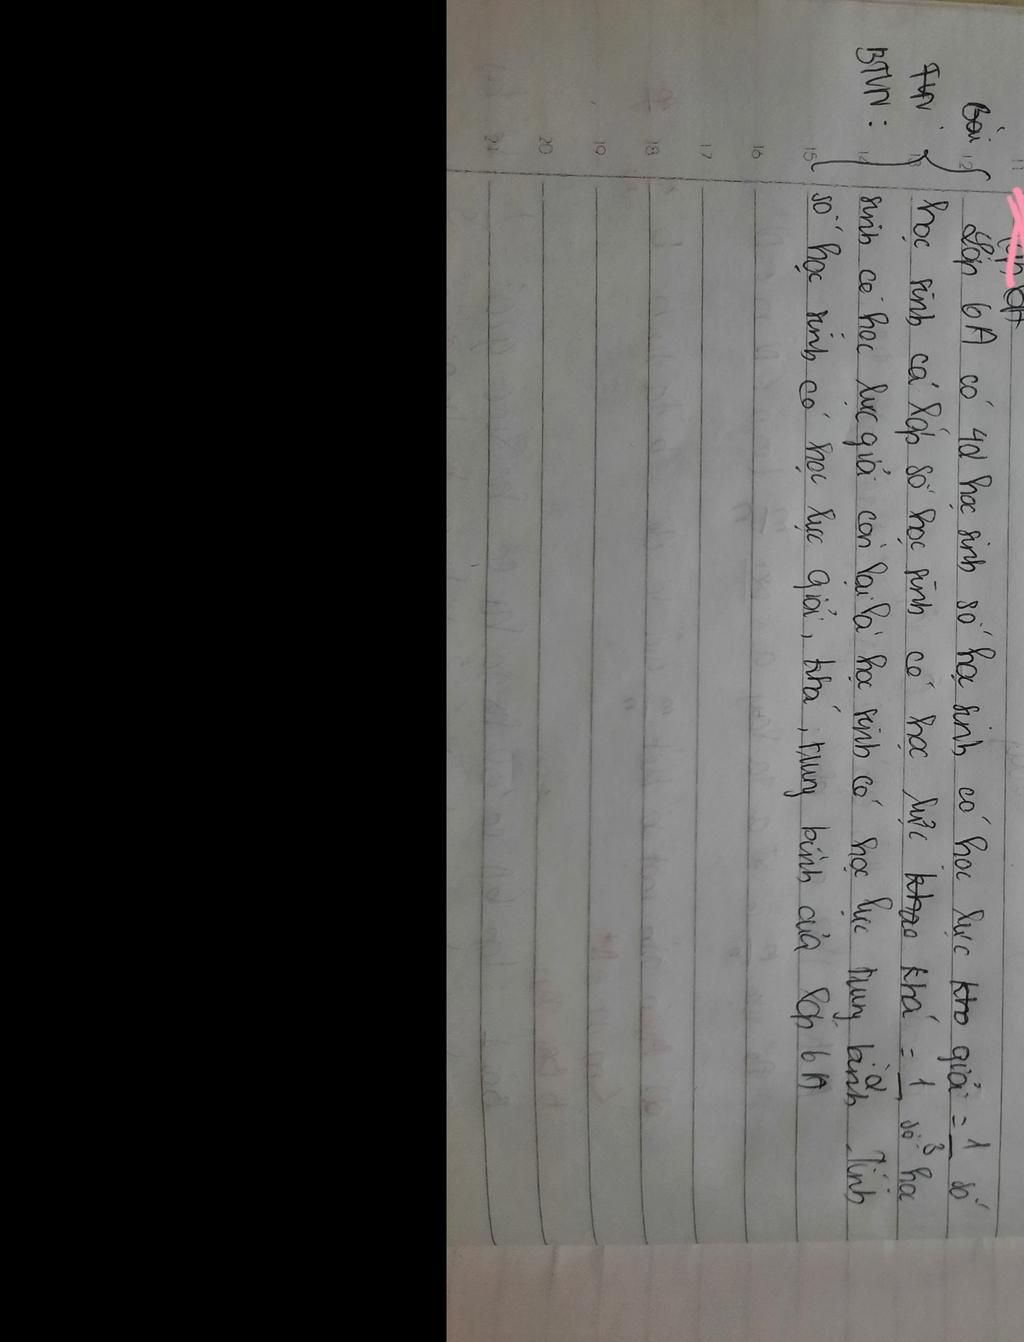 11 Lớp 6A
Bài 12 Lớp 6A có 42 học sinh số học sinh có học lực kho giỏi = 1 số
TLN : 13 học sinh cả lớp số học sinh có học lực khao khá = 1 3 số học
BTVN : 14 sinh có học lực giỏi còn lại là học sinh có học lực trung bình 2 . Tính
15 số học sinh có học lực giỏi, khá, trung bình của lớp 6A
16
17
18
19
20
21